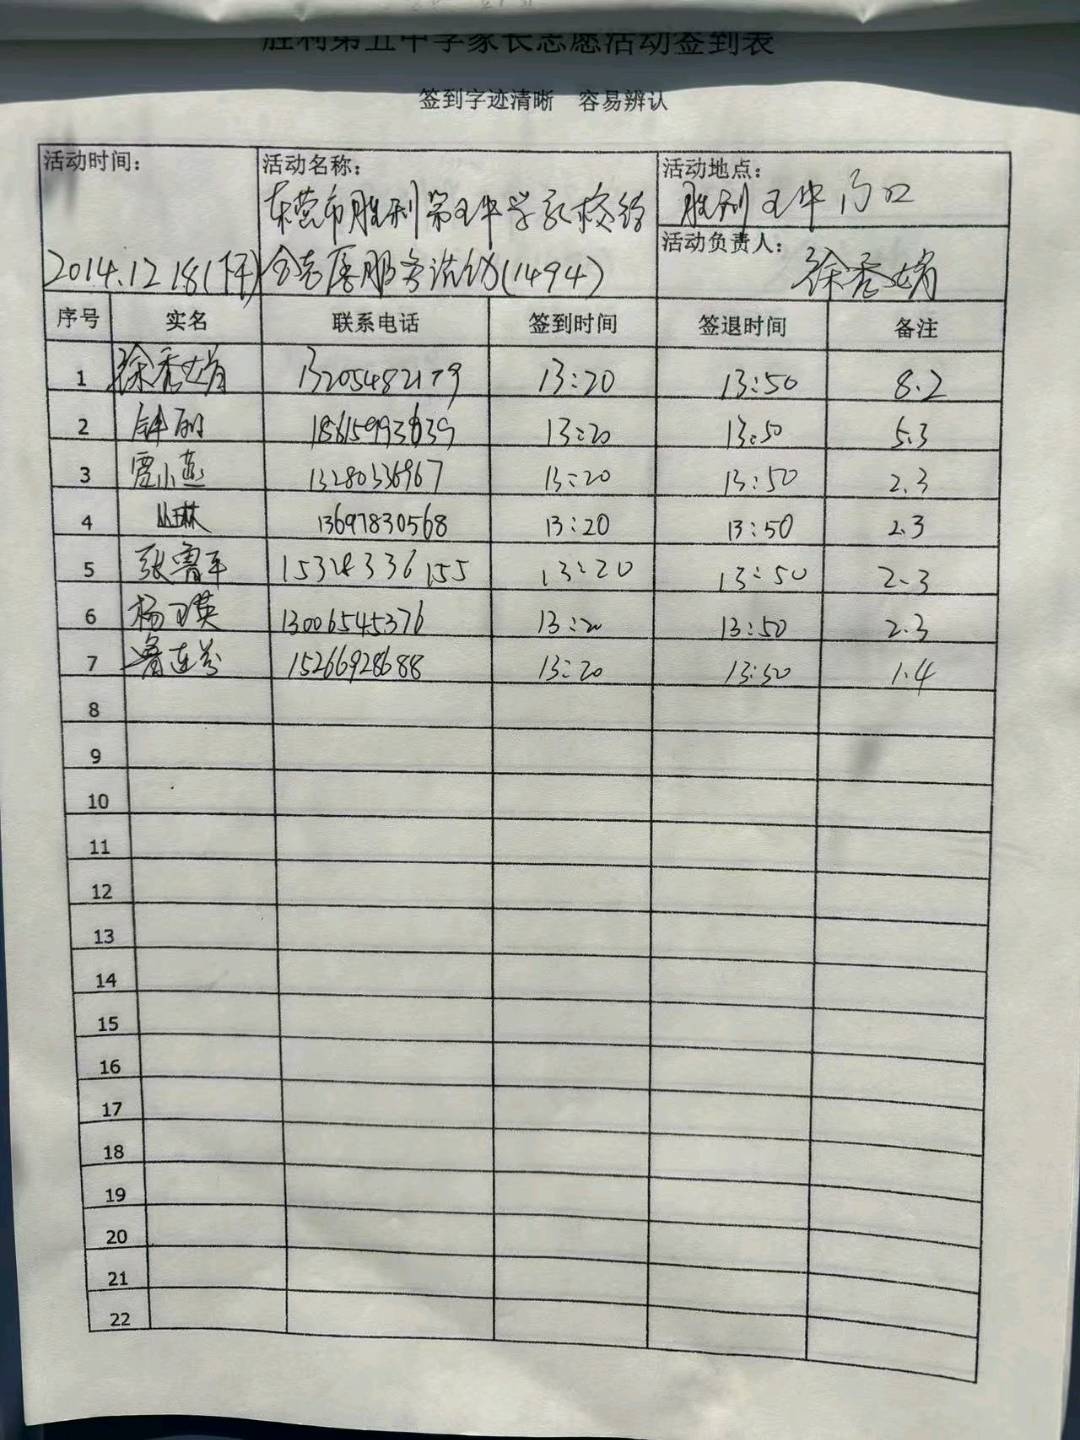 胜利第五中学家长志愿活动签到表
签到字迹清晰 容易辨认
活动时间:
2014.12.18(下午)
活动名称:
东营市胜利第五中学家校
服务活动(1494)
活动地点:
胜利五中门口
活动负责人:
徐秀娟
序号 实名 联系电话 签到时间 签退时间 备注
1 徐秀娟 13205482179 13:20 13:50 8.2
2 钟丽 18615993639 13:20 13:50 5.3
3 贾小燕 13280336967 13:20 13:50 2.3
4 丛琳 13697830568 13:20 13:50 2.3
5 张鲁平 15324336155 13:20 13:50 2.3
6 杨卫英 13006545376 13:20 13:50 2.3
7 鲁连芬 15266928688 13:20 13:50 1.4
8
9
10
11
12
13
14
15
16
17
18
19
20
21
22